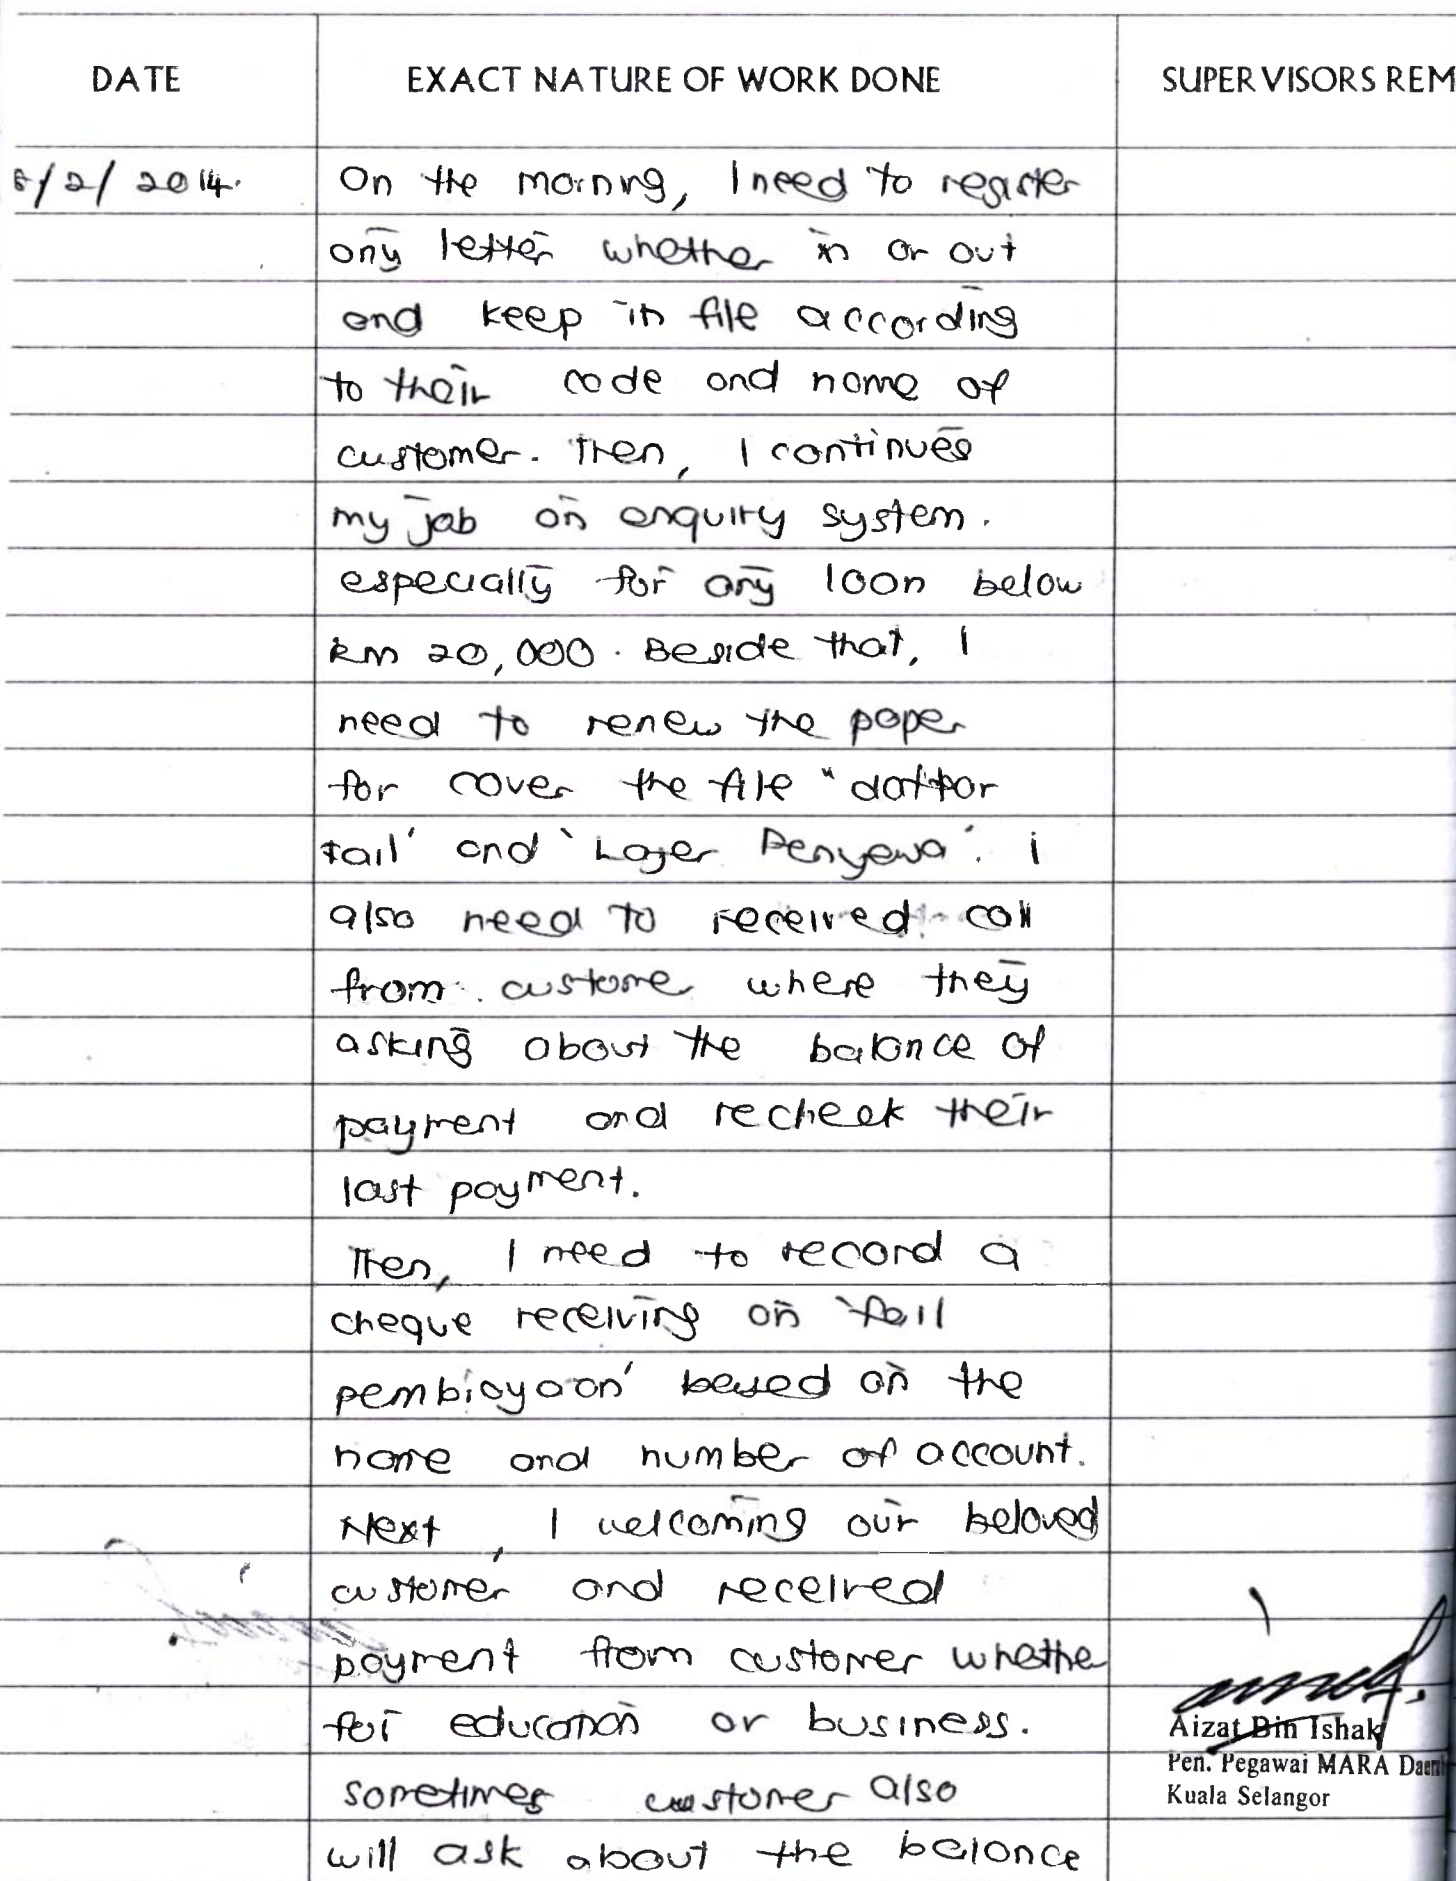 DATE EXACT NATURE OF WORK DONE SUPERVISORS REM
/2/2014. On the morning, I need to register
any letter whether in or out
and keep in file according
to their code and name of
customer. Then, I continues
my job on enquiry system.
especially for any loan below
RM 20,000. Beside that, I
need to renew the paper
for cover the file "daftar
fail' and 'Lajer Penyewa'. i
also need to received call
from custome where they
asking about the balance of
payment and recheek their
last payment.
Then, I need to record a
cheque receiving on 'fail
pembiayaan' based on the
name and number of account.
Next, I welcoming our beloved
customer and received
payment from customer whether
for education or business.
sometimes customer also
will ask about the balance
Aizat Bin Ishak
Pen. Pegawai MARA
Kuala Selangor